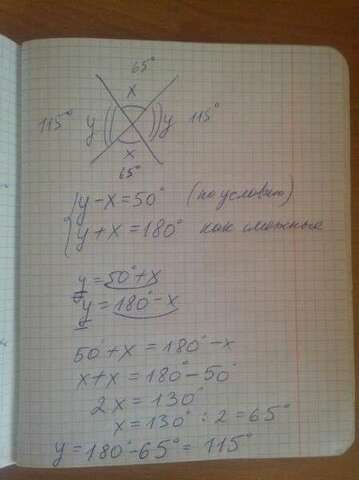 65°
x
115° y y 115°
x
65°
y-x=50° (по условию)
y+x=180° как смежные
y=50°+x
y=180°-x
50°+x=180°-x
x+x=180°-50°
2x=130°
x=130°:2=65°
y=180°-65°=115°